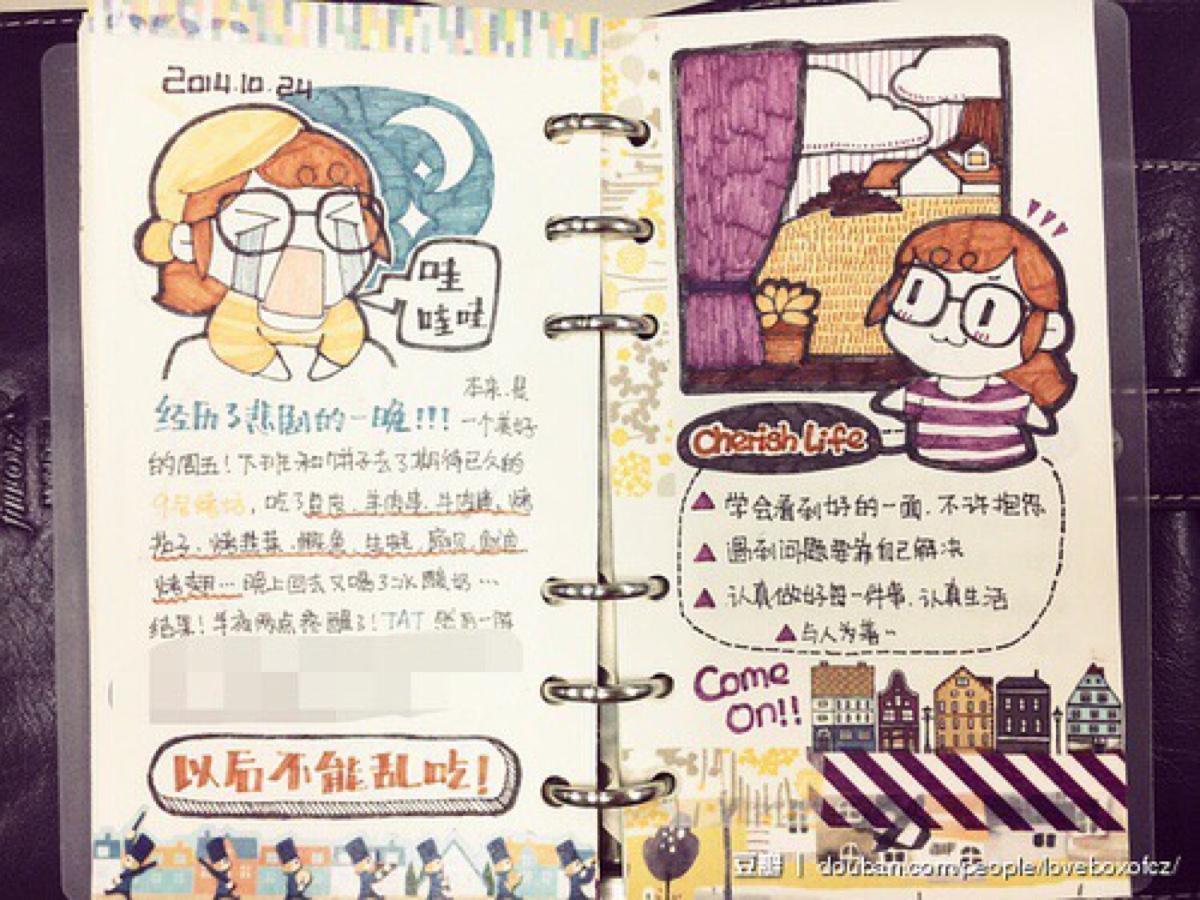 2014.10.24
哇
哇哇
本来是
经历了悲剧的一晚!!! 一个美好
的周五!下班和饼子去了期待已久的
吃了豆皮、羊肉串、牛肉串、烤
茄子、烤韭菜、鱿鱼、生蚝、扇贝
烤翅…晚上回去又喝了冰酸奶…
结果!半夜两点疼醒了!TAT 然后一阵
以后不能乱吃!
Cherish Life
▲学会看到好的一面.不许抱怨
▲遇到问题要靠自己解决
▲认真做好每一件事.认真生活
▲与人为善~
Come
On!!
豆瓣 | douban.com/people/loveboxofcz/